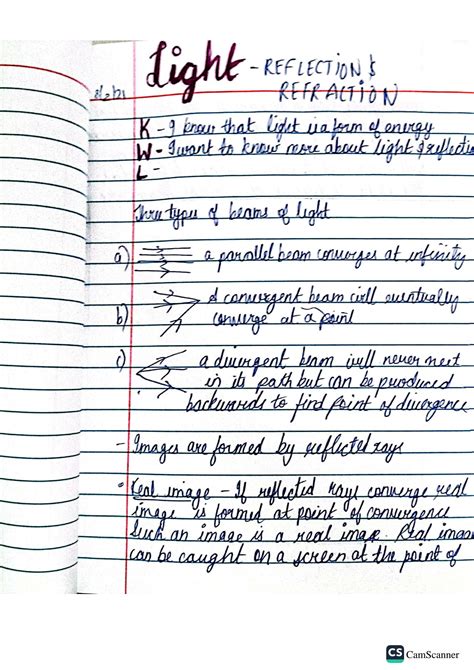 Light - REFLECTION &
8/2/21 REFRACTION
K - I know that light is a form of energy
W - I want to know more about light & reflectio
L -
Three types of beams of light
a) a parallel beam converges at infinity
A convergent beam will eventually
b) converge at a point
c) a divergent beam will never meet
in its path but can be produced
backwards to find point of divergence
- Images are formed by reflected rays
Real image - If reflected rays converge real
image is formed at point of convergence
Such an image is a real image. Real image
can be caught on a screen at the point of
CS CamScanner